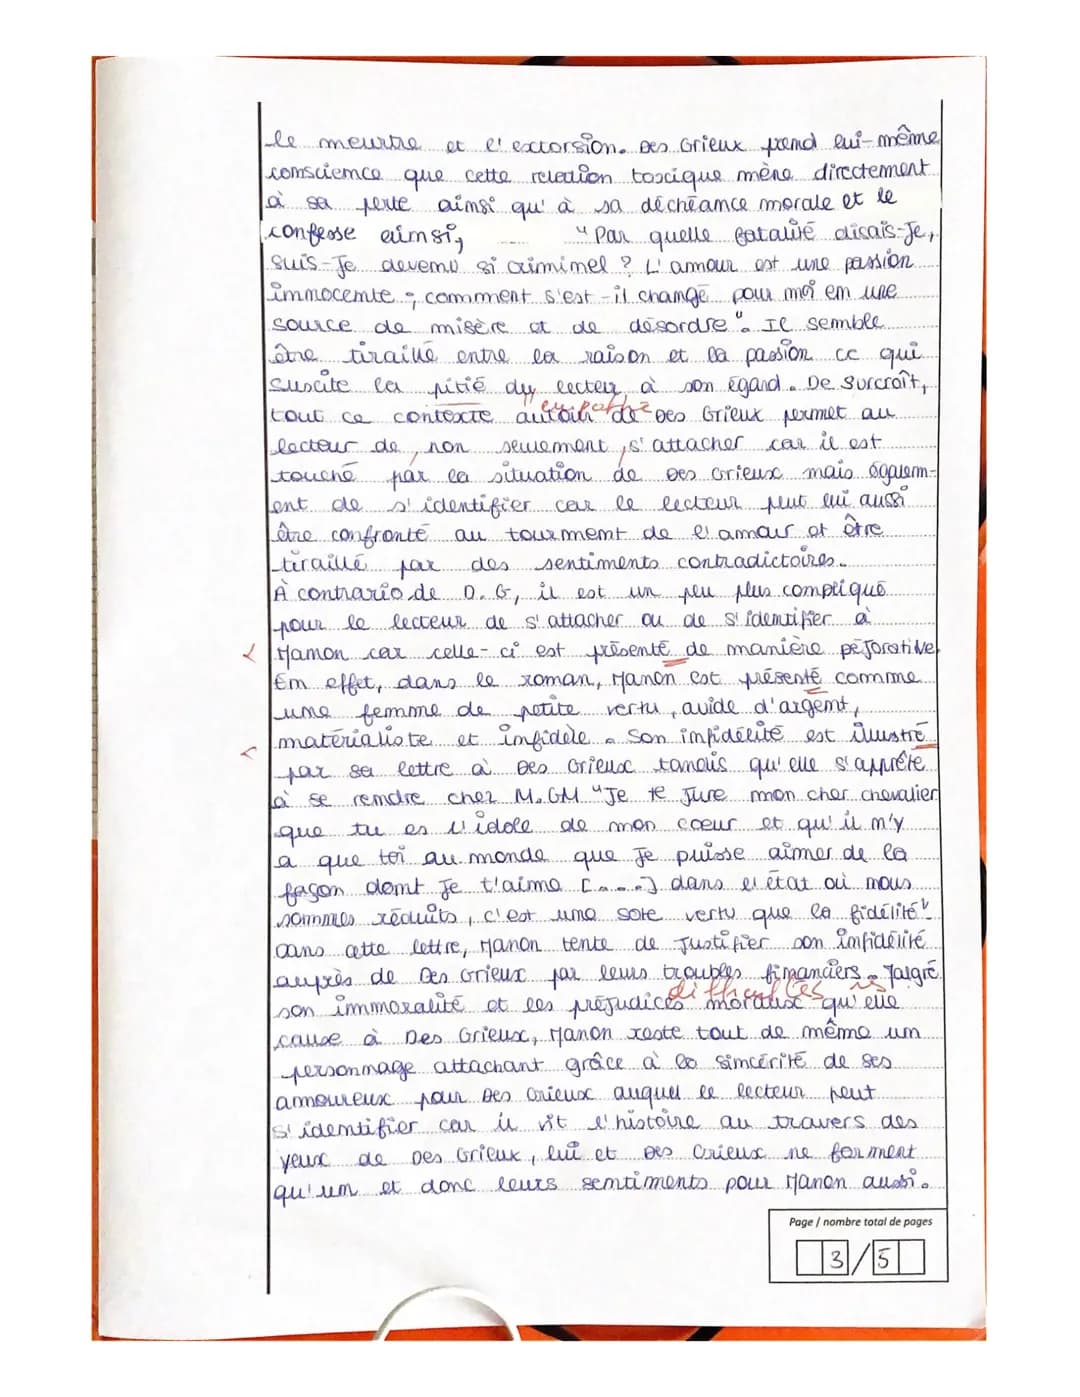 le meurtre et l'extorsion. Des Grieux prend lui-même
conscience que cette relation toxique mène directement
à sa perte ainsi qu'à sa déchéance morale et le
confesse ainsi, "Par quelle fatalité disais-Je,
suis-Je devenu si criminel ? L'amour est une passion
innocente ; comment s'est-il changé pour moi en une
source de misère et de désordre". Il semble
être tiraillé entre la raison et la passion ce qui
suscite la pitié du lecteur à son égard. De Surcroît,
empathie
tout ce contexte autour de Des Grieux permet au
lecteur de, non seulement, s'attacher car il est
touché par la situation de Des Grieux mais égalem-
ent de s'identifier car le lecteur peut lui aussi
être confronté au tourment de l'amour et être
tiraillé par des sentiments contradictoires.
À contrario de D.G, il est un peu plus compliqué
pour le lecteur de s'attacher ou de s'identifier à
Manon car celle-ci est présenté de manière péJorative.
En effet, dans le roman, Manon est présenté comme
une femme de petite vertu, avide d'argent,
matérialiste et infidèle. Son infidélité est illustré
par sa lettre à Des Grieux tandis qu'elle s'apprête
à se rendre chez M.GM "Je te Jure mon cher chevalier
que tu es l'idole de mon coeur et qu'il n'y
a que toi au monde que Je puisse aimer de la
façon dont Je t'aime [....] dans l'état où nous
sommes réduits, c'est une sote vertu que la fidélité"
Dans cette lettre, Manon tente de Justifier son infidélité
auprès de Des Grieux par leurs troubles financiers. Malgré
difficultés is
son immoralité et les préjudices moraux qu'elle
cause à Des Grieux, Manon reste tout de même un
personnage attachant grâce à la sincérité de ses
amoureux pour Des Grieux auquel le lecteur peut
s'identifier car il vit l'histoire au travers des
yeux de Des Grieux, lui et Des Grieux ne forment
qu'un et donc leurs sentiments pour Manon aussi.
Page / nombre total de pages
3/5